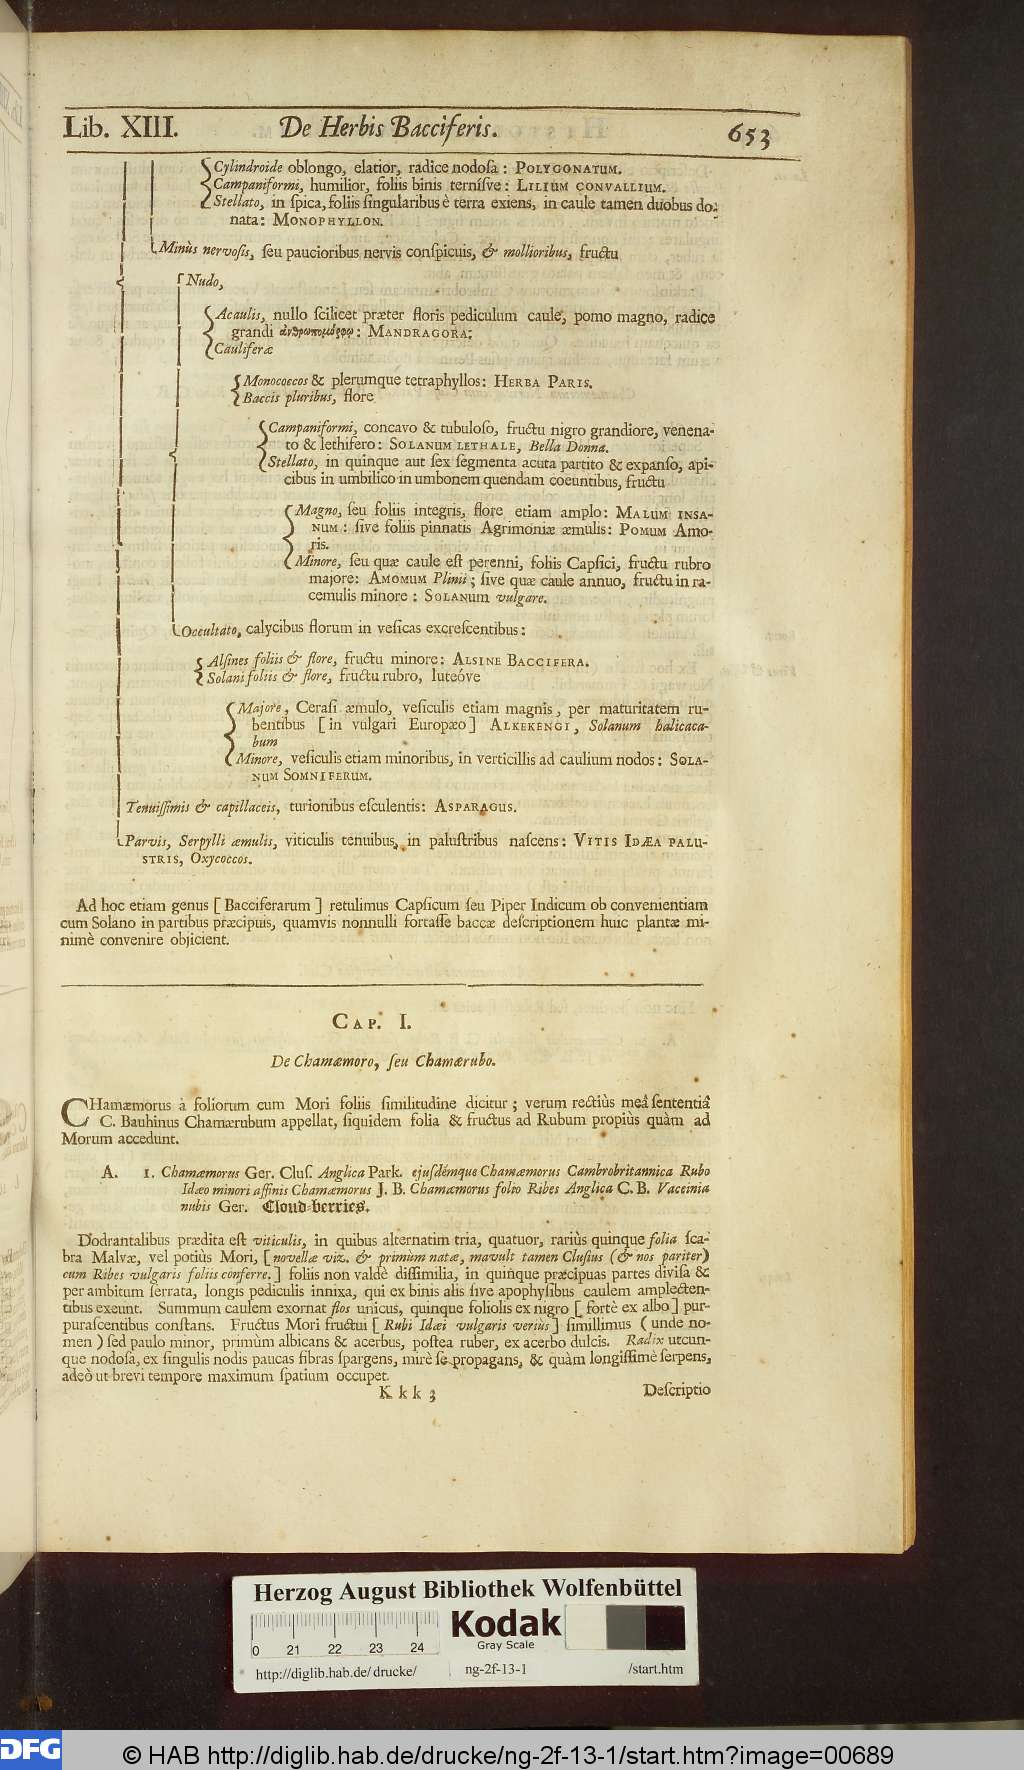 Lib. XIII. De Herbis Bacciferis. 653
Cylindroide oblongo, elatior, radice nodoſa : POLYGONATUM.
Campaniformi, humilior, foliis binis terniſve : LILIUM CONVALLIUM.
Stellato, in ſpica, foliis ſingularibus è terra exiens, in caule tamen duobus do-
nata : MONOPHYLLON.
Minùs nervoſis, ſeu paucioribus nervis conſpicuis, & mollioribus, fructu
Nudo,
Acaulis, nullo ſcilicet præter floris pediculum caule, pomo magno, radice
grandi ἀνθρωπομόρφῳ : MANDRAGORA.
Cauliferæ
Monococcos & plerumque tetraphyllos : HERBA PARIS.
Baccis pluribus, flore
Campaniformi, concavo & tubuloſo, fructu nigro grandiore, venena-
to & lethifero : SOLANUM LETHALE, Bella Donna.
Stellato, in quinque aut ſex ſegmenta acuta partito & expanſo, api-
cibus in umbilico in umbonem quendam coeuntibus, fructu
Magno, ſeu foliis integris, flore etiam amplo : MALUM INSA-
NUM : ſive foliis pinnatis Agrimoniæ æmulis : POMUM Amo-
ris.
Minore, ſeu quæ caule eſt perenni, foliis Capſici, fructu rubro
majore : AMOMUM Plinii ; ſive quæ caule annuo, fructu in ra-
cemulis minore : SOLANum vulgare.
Occultato, calycibus florum in veſicas excreſcentibus :
Alſines foliis & flore, fructu minore : ALSINE BACCIFERA.
Solani foliis & flore, fructu rubro, luteóve
Majore, Ceraſi æmulo, veſiculis etiam magnis, per maturitatem ru-
bentibus [ in vulgari Europæo ] ALKEKENGI, Solanum halicaca-
bum
Minore, veſiculis etiam minoribus, in verticillis ad caulium nodos : SOLA-
NUM SOMNIFERUM.
Tenuiſſimis & capillaceis, turionibus eſculentis : ASPARAGUS.
Parvis, Serpylli æmulis, viticulis tenuibus, in paluſtribus naſcens : VITIS IDÆA PALU-
STRIS, Oxycoccos.
Ad hoc etiam genus [ Bacciferarum ] retulimus Capſicum ſeu Piper Indicum ob convenientiam
cum Solano in partibus præcipuis, quamvis nonnulli fortaſſe baccæ deſcriptionem huic plantæ mi-
nimè convenire objicient.
CAP. I.
De Chamæmoro, ſeu Chamærubo.
CHamæmorus à foliorum cum Mori foliis ſimilitudine dicitur ; verum rectiùs meâ ſententiâ
C. Bauhinus Chamærubum appellat, ſiquidem folia & fructus ad Rubum propiùs quàm ad
Morum accedunt.
A. 1. Chamæmorus Ger. Cluſ. Anglica Park. ejuſdémque Chamæmorus Cambrobritannica Rubo
Idæo minori affinis Chamæmorus J. B. Chamæmorus folio Ribes Anglica C. B. Vaccinia
nubis Ger. Cloud-berries.
Dodrantalibus prædita eſt viticulis, in quibus alternatim tria, quatuor, rariùs quinque folia ſca-
bra Malvæ, vel potiùs Mori, [ novellæ viz. & primùm natæ, mavult tamen Cluſius (& nos pariter)
cum Ribes vulgaris foliis conferre. ] foliis non valdè diſſimilia, in quinque præcipuas partes diviſa &
per ambitum ſerrata, longis pediculis innixa, qui ex binis alis ſive apophyſibus caulem amplecten-
tibus exeunt. Summum caulem exornat flos unicus, quinque foliolis ex nigro [ fortè ex albo ] pur-
puraſcentibus conſtans. Fructus Mori fructui [ Rubi Idæi vulgaris veriùs ] ſimillimus ( unde no-
men ) ſed paulo minor, primùm albicans & acerbus, poſtea ruber, ex acerbo dulcis. Radix utcun-
que nodoſa, ex ſingulis nodis paucas fibras ſpargens, mirè ſe propagans, & quàm longiſſimè ſerpens,
adeò ut brevi tempore maximum ſpatium occupet.
K k k 3 Deſcriptio
Herzog August Bibliothek Wolfenbüttel
Kodak
Gray Scale
0 21 22 23 24
http://diglib.hab.de/drucke/ ng-2f-13-1 /start.htm
DFG © HAB http://diglib.hab.de/drucke/ng-2f-13-1/start.htm?image=00689